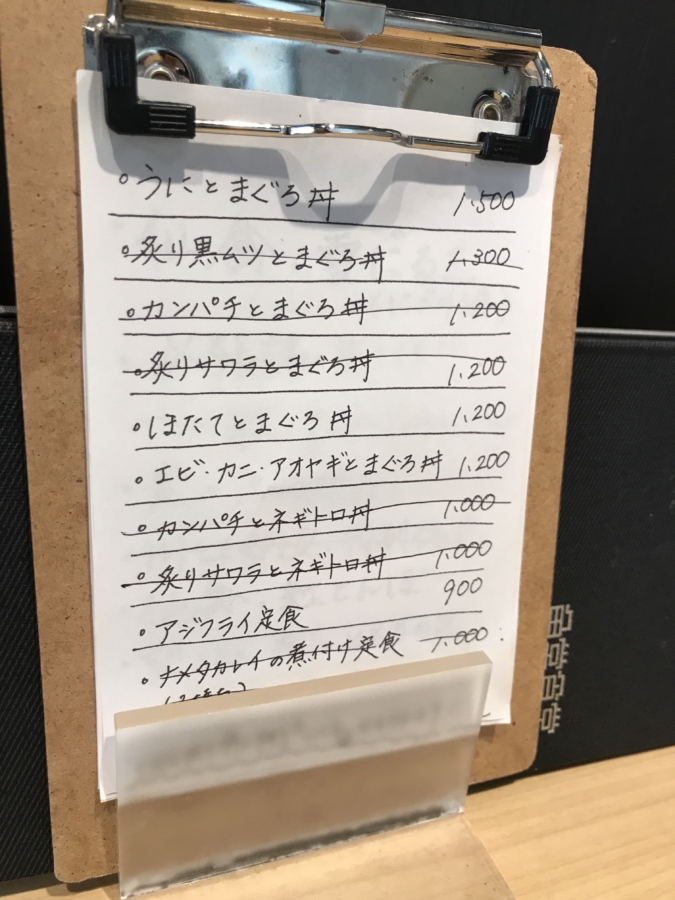 ・うにとまぐろ丼 1,500
・炙り黒ムツとまぐろ丼 1,300
・カンパチとまぐろ丼 1,200
・炙りサワラとまぐろ丼 1,200
・ほたてとまぐろ丼 1,200
・エビ・カニ・アオヤギとまぐろ丼 1,200
・カンパチとネギトロ丼 1,000
・炙りサワラとネギトロ丼 1,000
・アジフライ定食 900
・ナメタカレイの煮付け定食 1,000